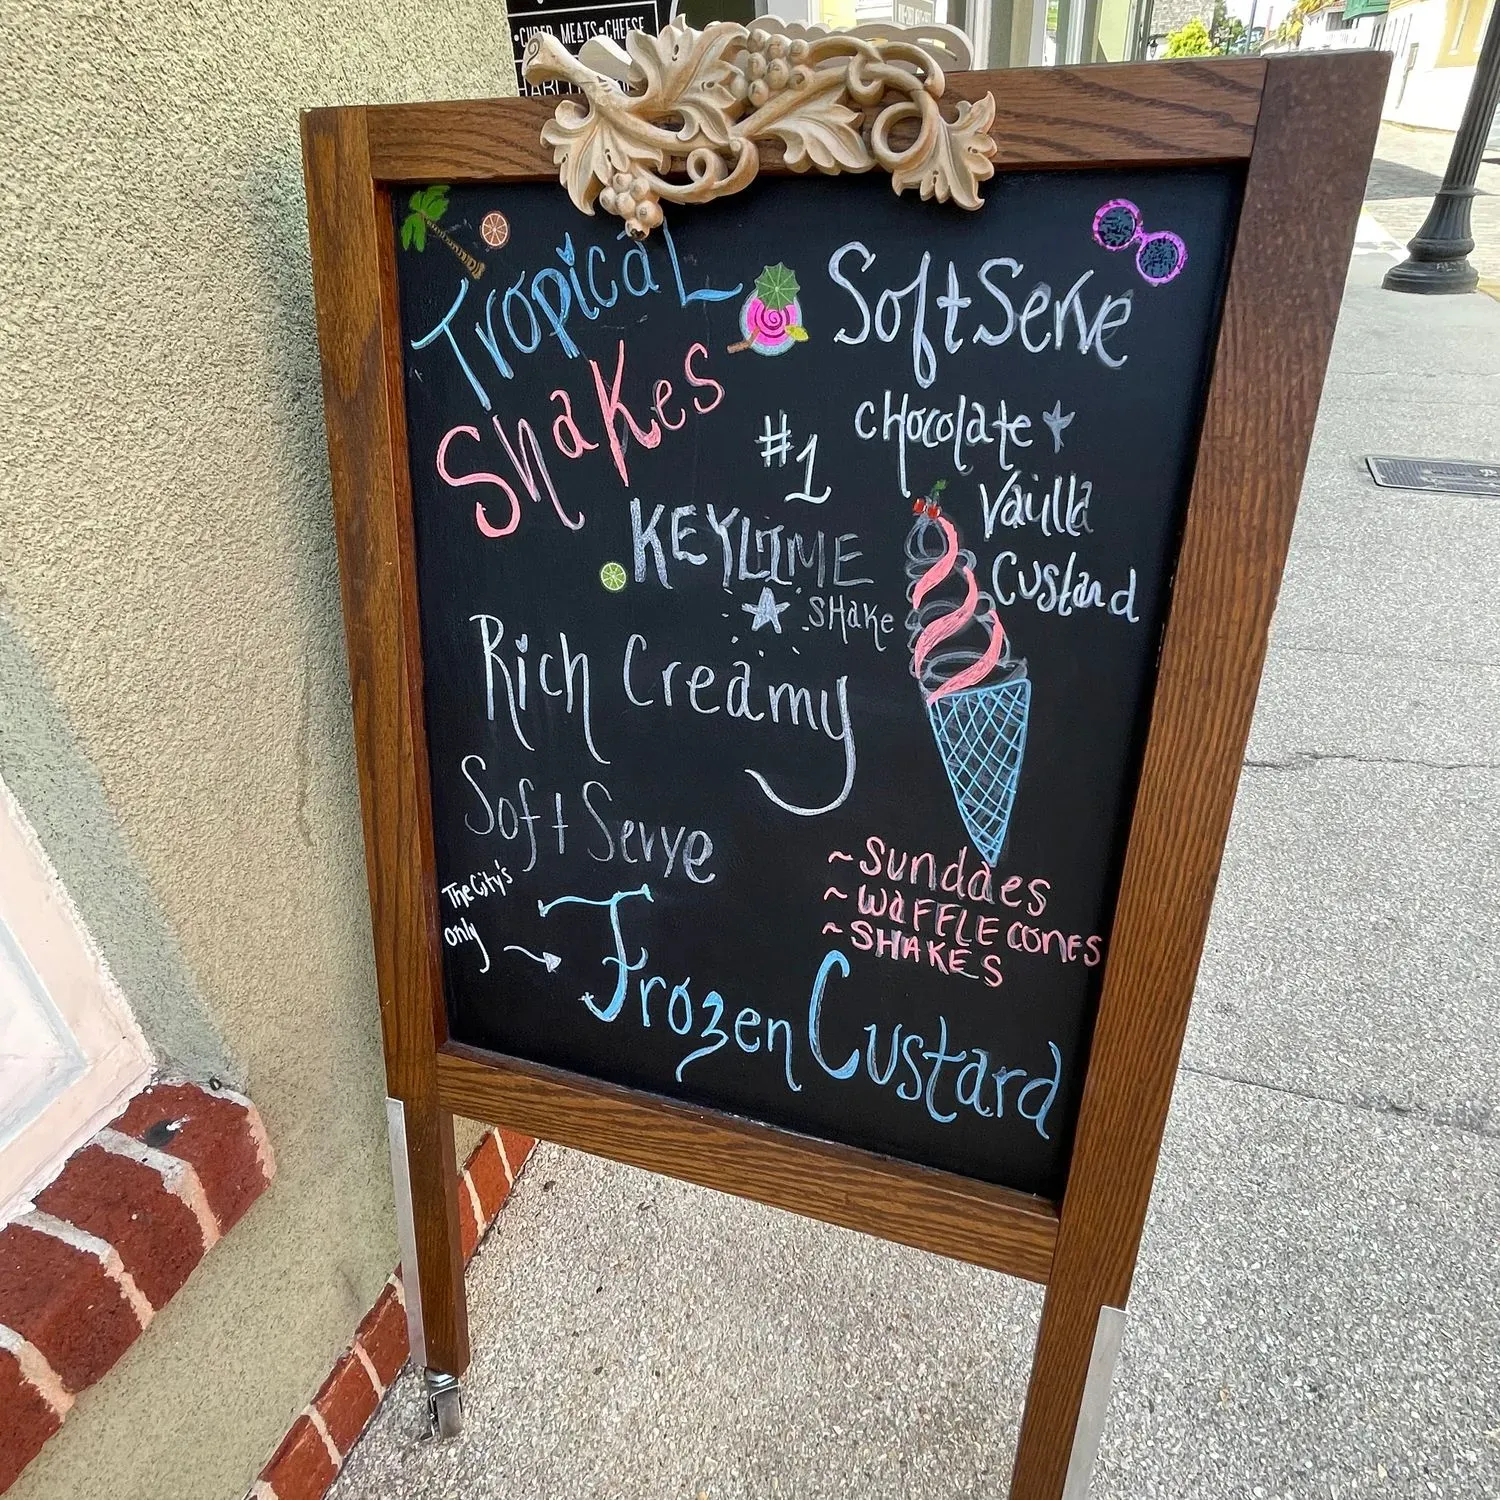 •CURED MEATS•CHEESE
Tropical
Shakes
#1
KEYLIME
SHake
Rich Creamy
Soft Serve
The City's
only
Frozen Custard
Soft Serve
cHocolate
Vailla
Custard
~Sundaes
~WaFFLE CONES
~SHAKES